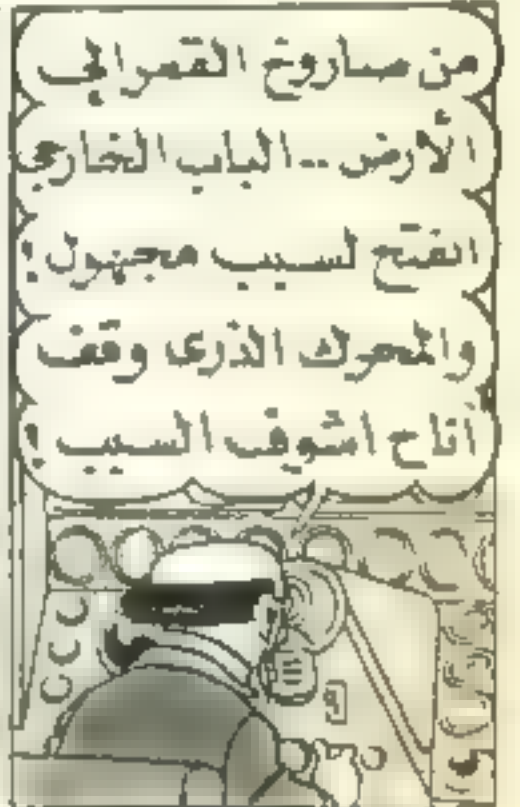 من صاروخ القمر الى
الأرض .. الباب الخارجى
انفتح لسبب مجهول !
والمحرك الذرى وقف
اناح اشوف السبب !